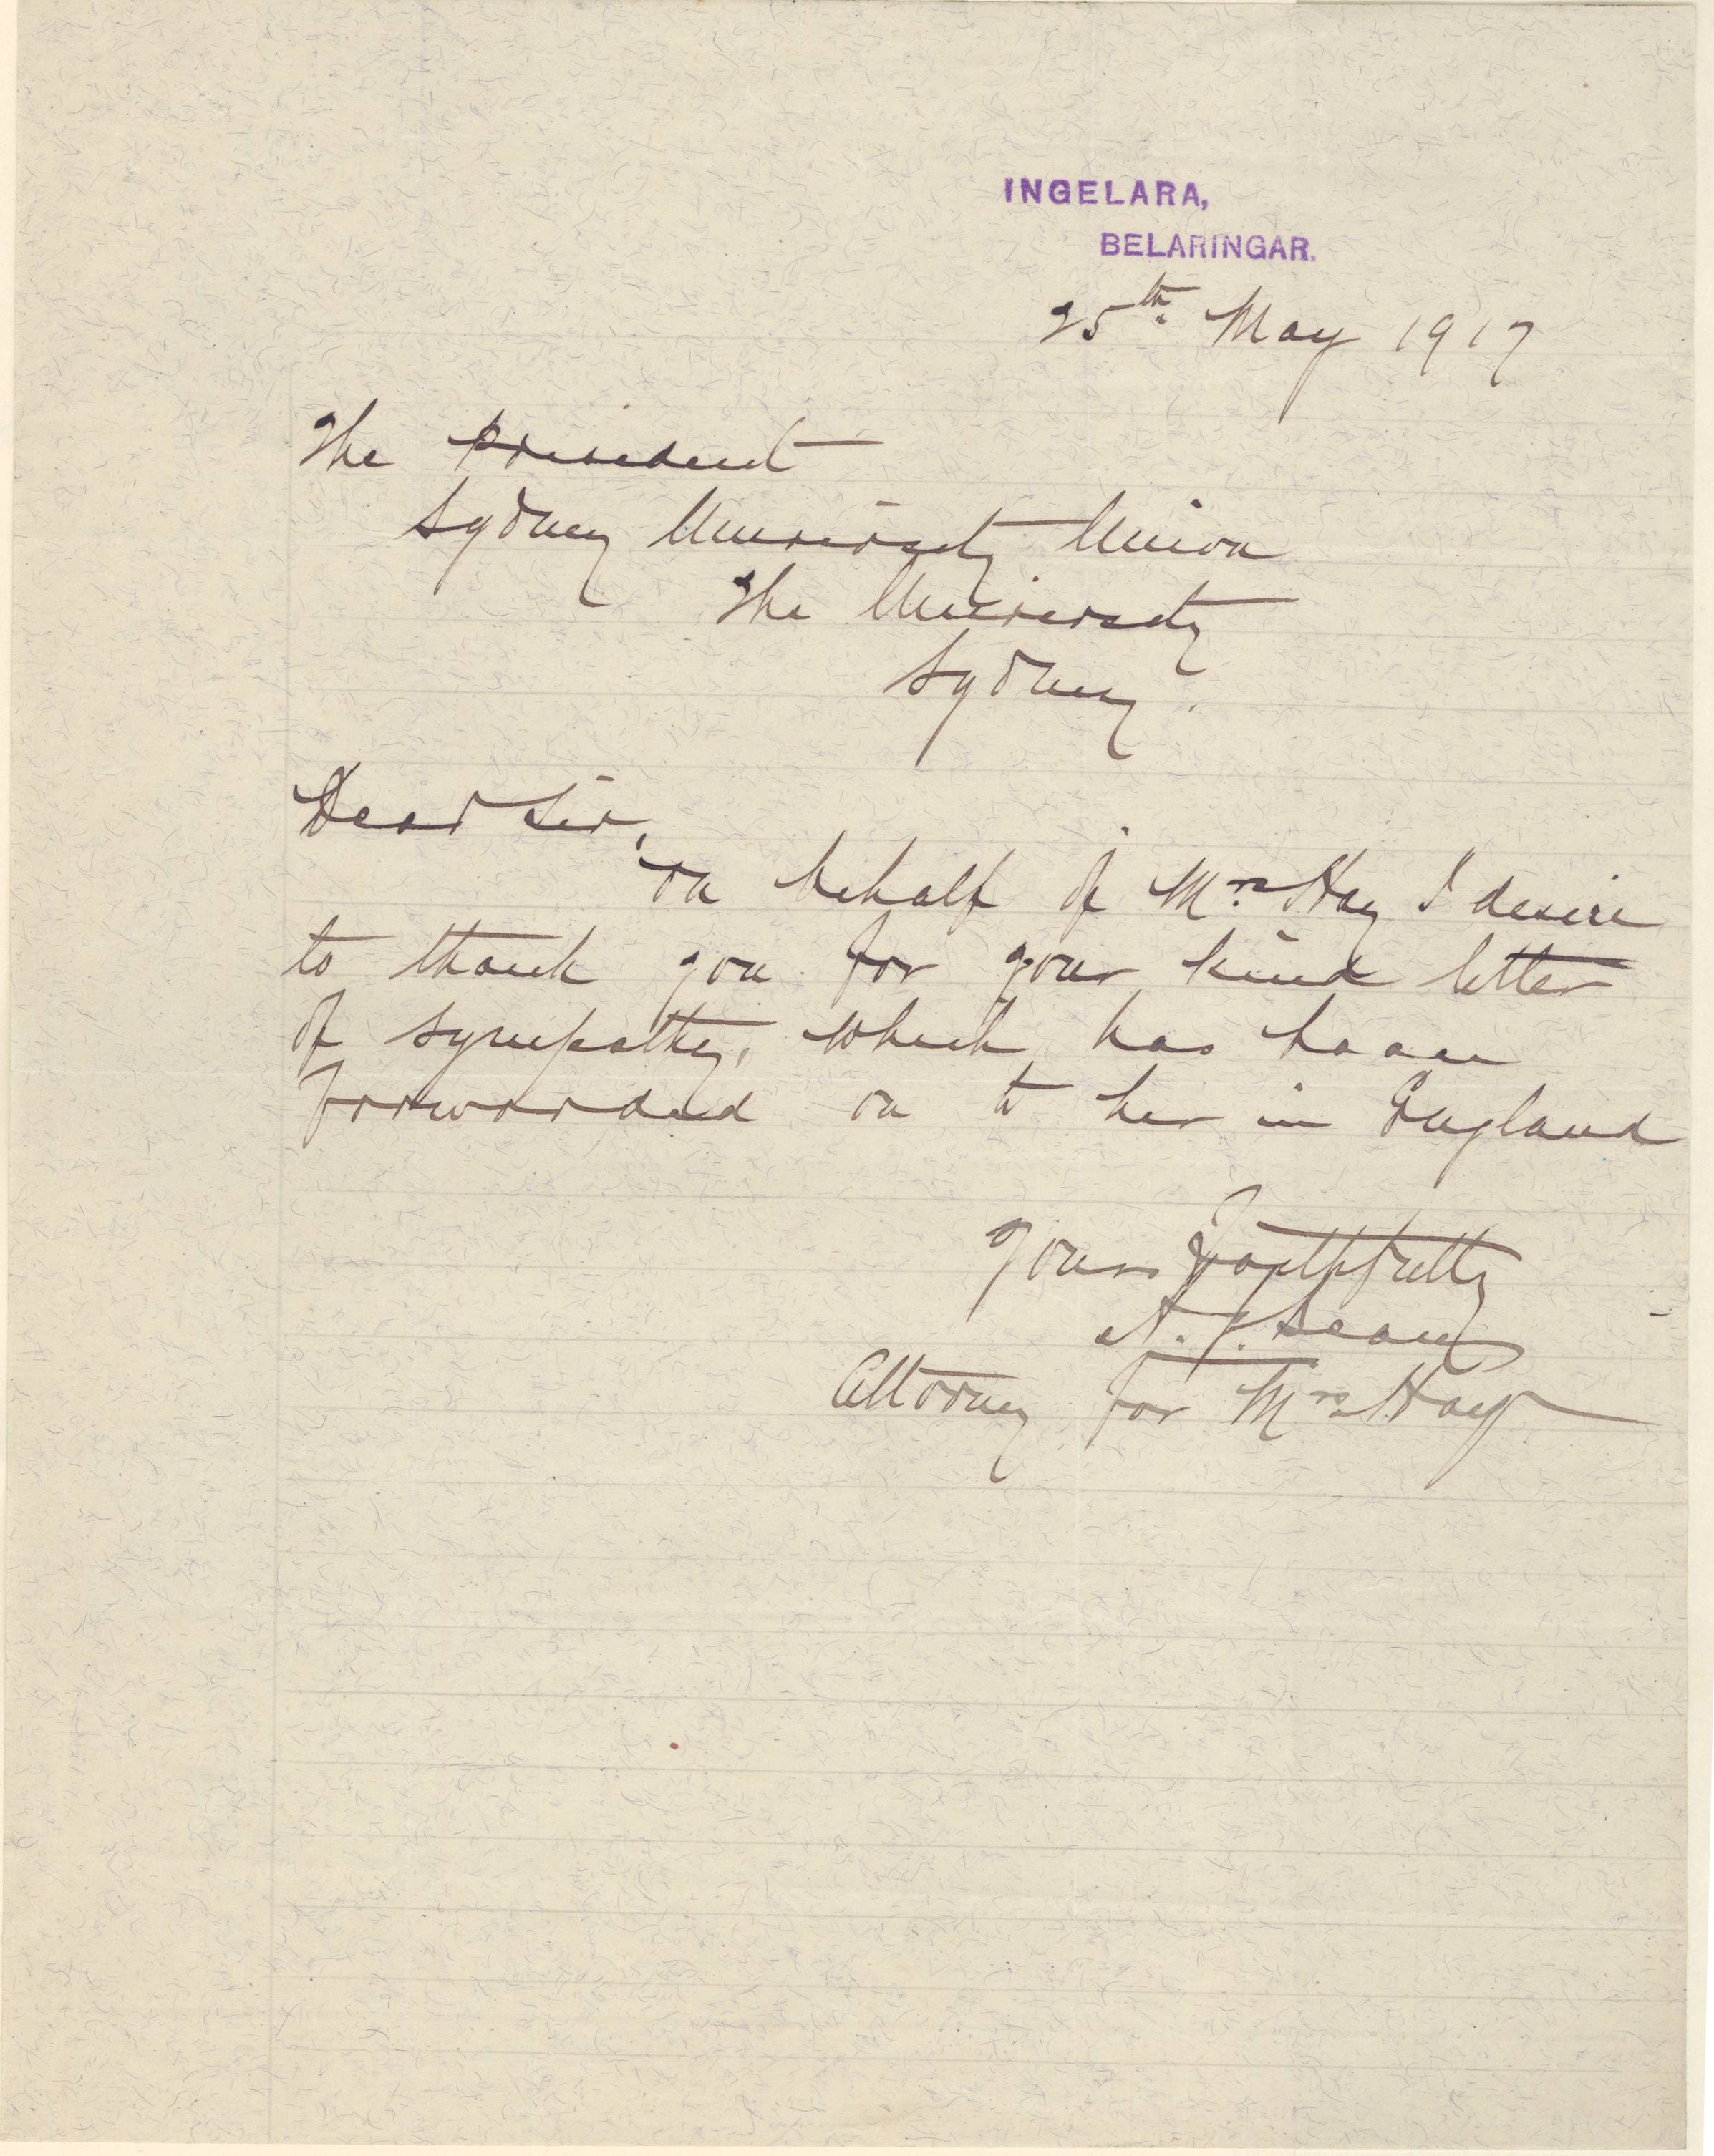 INGELARA,
BELARINGAR.
25th May 1917
The President
Sydney University Union
The University
Sydney.
Dear Sir,
on behalf of Mrs Hay I desire
to thank you for your kind letter
of sympathy, which has been
forwarded on to her in England
Yours faithfully
A. J.
Attorney for Mrs Hay